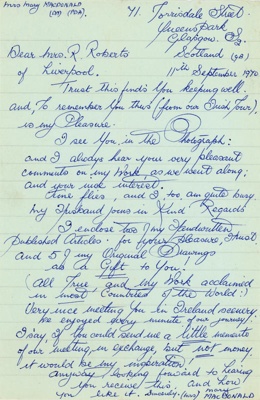 Mrs Mary MACDONALD
(DM) (PDA).
41. Torrisdale Street.
Queens Park
Glasgow. S.2.
Scotland (GB)
Dear Mrs. R. Roberts
of Liverpool.
11th September 1970
Trust this finds you keeping well.
and, To remember you thus (from our Irish Tour).
is my Pleasure.
I see you in the Photograph:
and I always hear your very pleasant
comments on my Work, as we went along;
and your nice interest.
Time flies, and I, too, am quite busy.
My Husband joins in Kind Regards
I enclose two of my Handwritten
Published Articles. for your Pleasure, I trust
and 5 of my Original Drawings
as a Gift to You!
(All True and My Work acclaimed
in most Countries of the World!)
Very nice meeting you in Ireland scenery.
We enjoyed every minute of our journey!
I say, if you could send me a little memento
of our meeting in exchange, but not money
it would be my inspiration.
anyway looking forward to hearing
you receive this, and how
you like it. Sincerely. (Mrs) Mary
MACDONALD